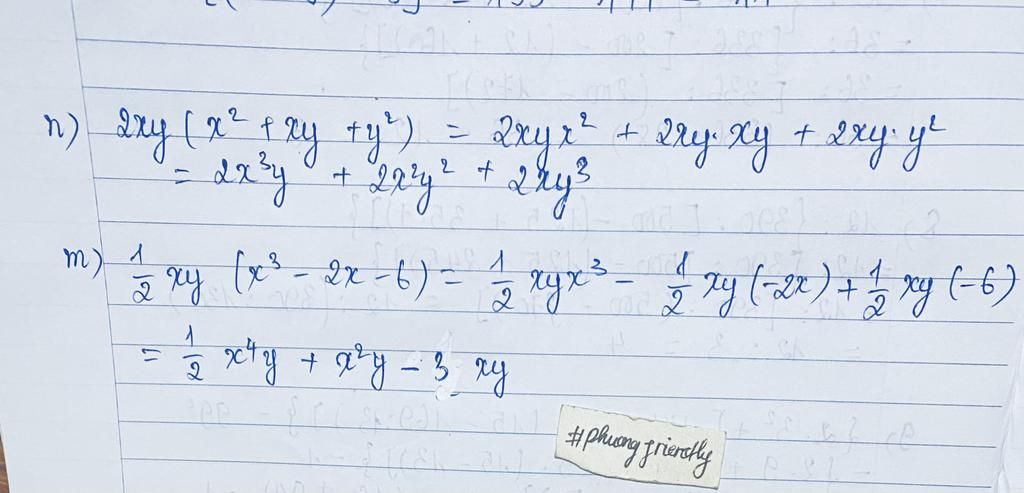 n) 2xy (x² + xy + y²) = 2xyx² + 2xy·xy + 2xy·y²
= 2x³y + 2x²y² + 2xy³
m) 1/2 xy (x³ - 2x - 6) = 1/2 xyx³ - 1/2 xy (-2x) + 1/2 xy (-6)
= 1/2 x⁴y + x²y - 3 xy
#phuongfriendly